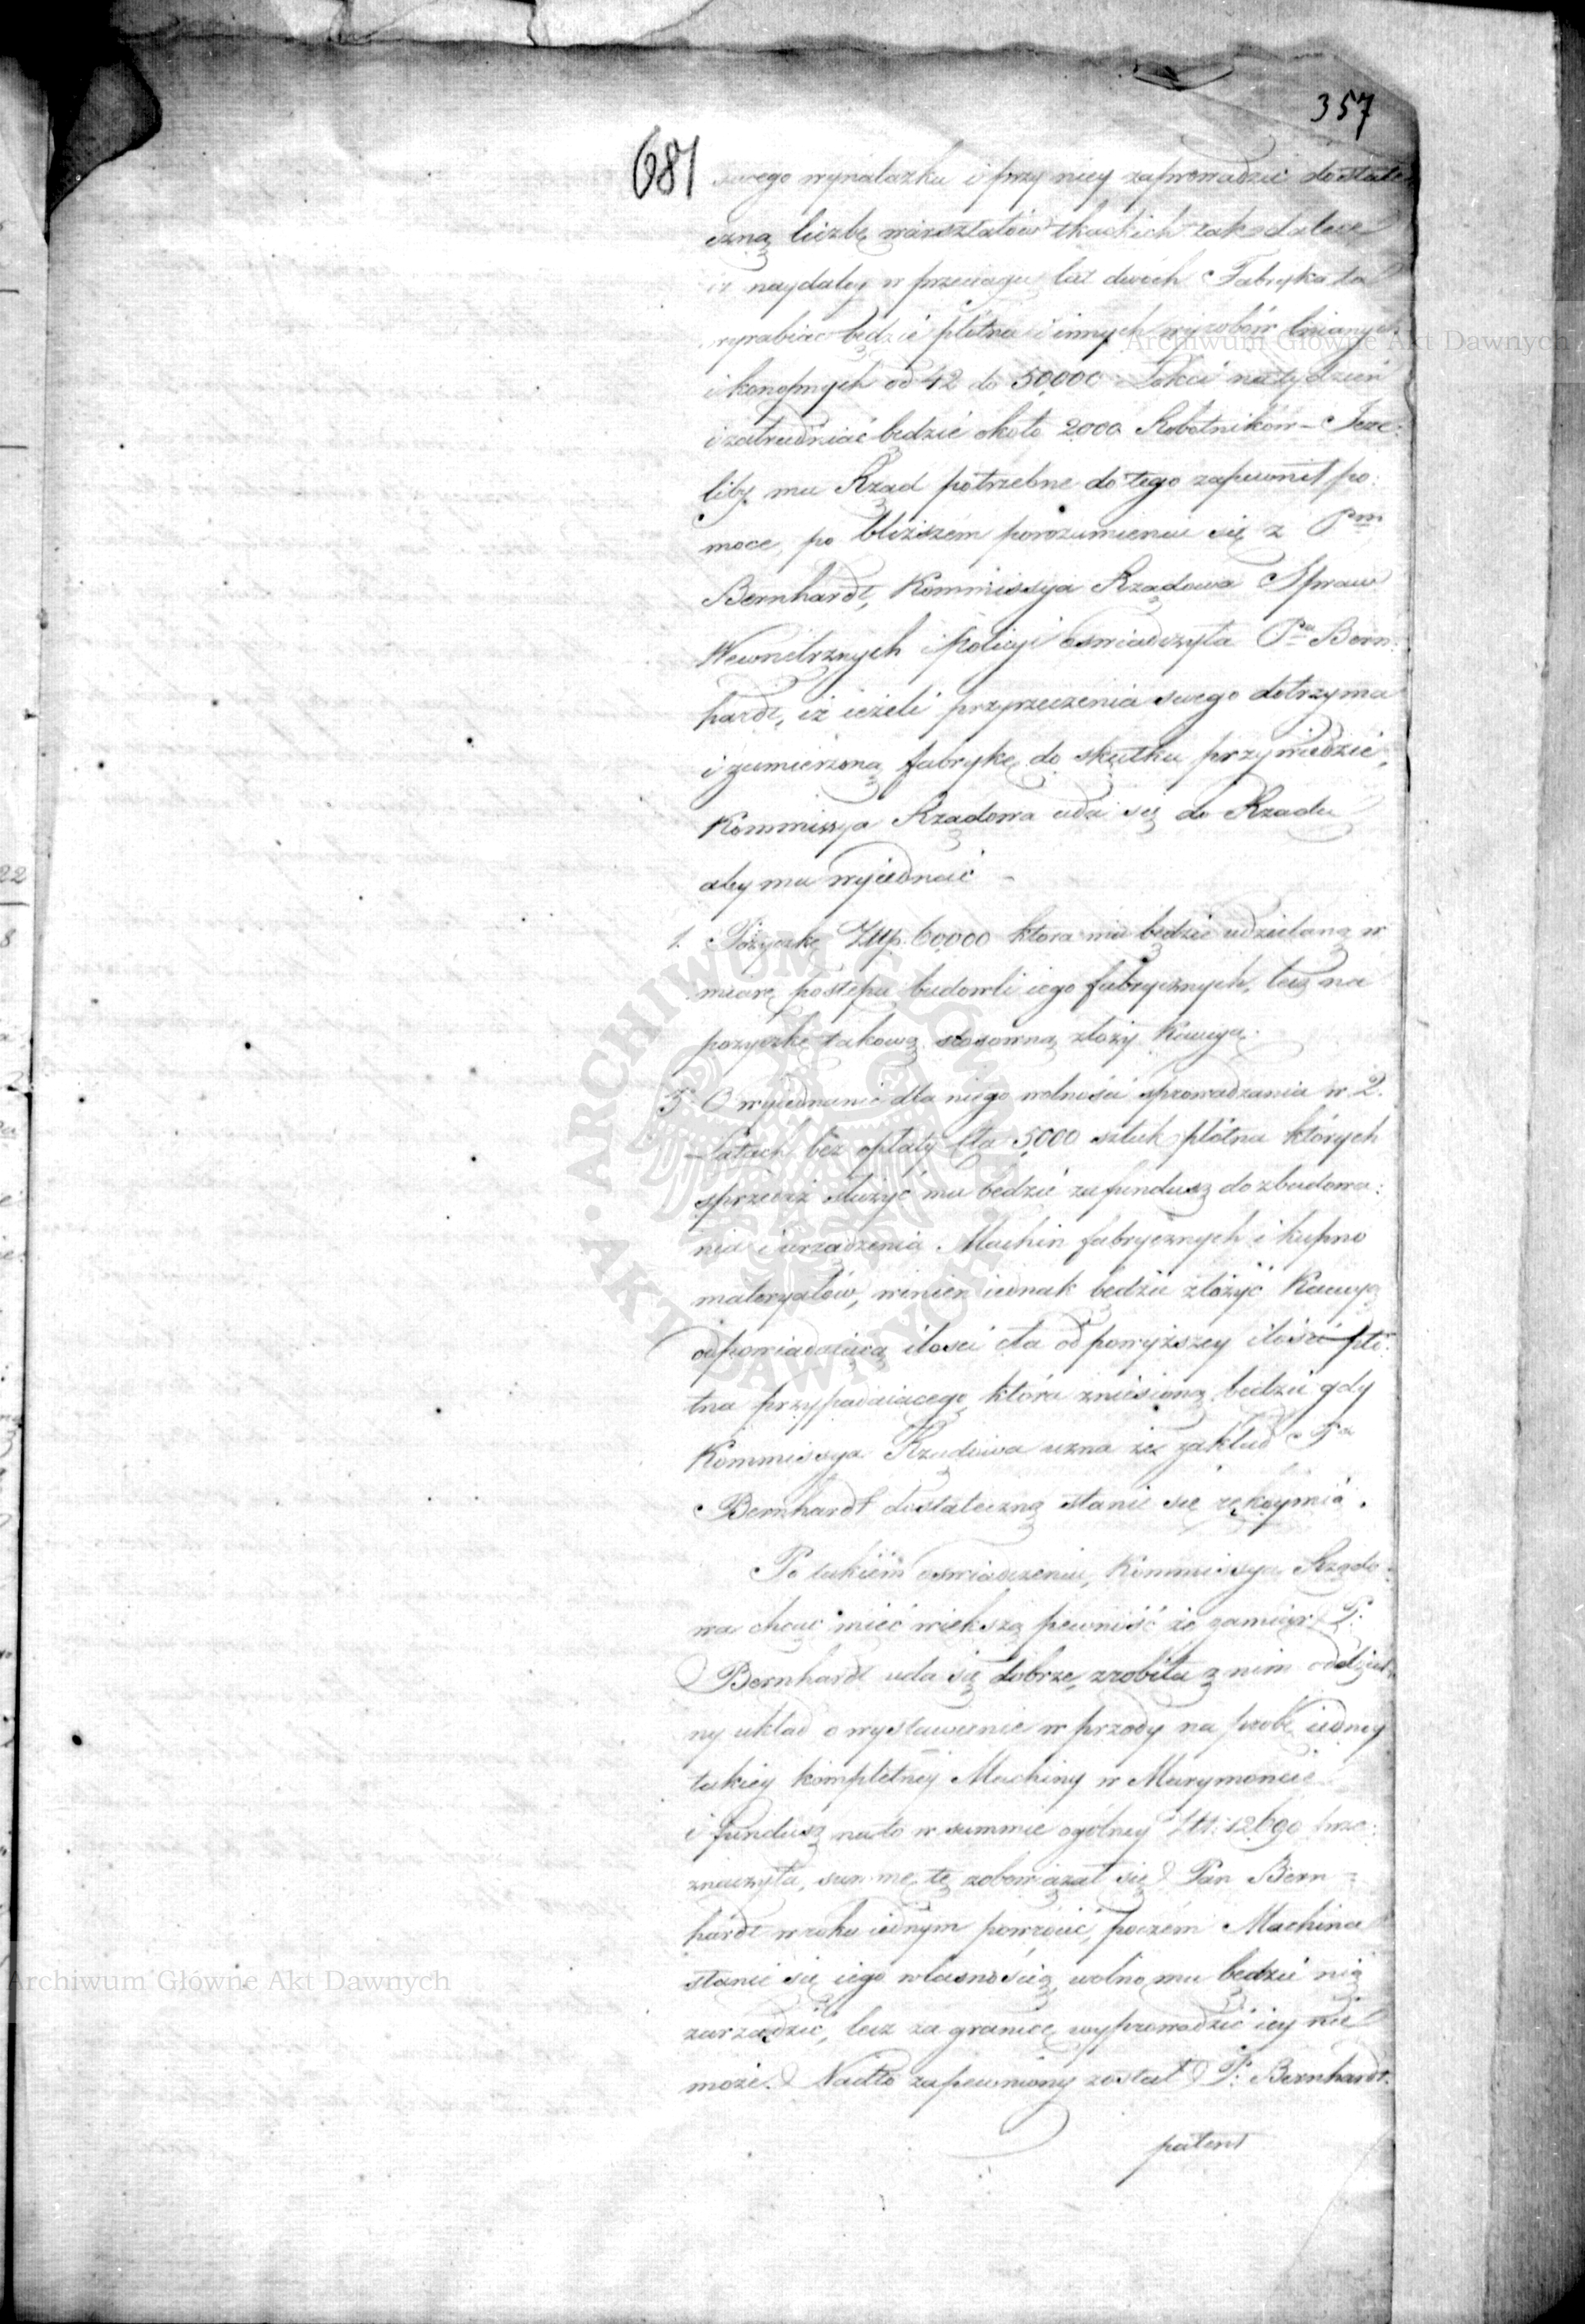 357
681
swego wynalazku i przy niey zaprowadzić dostate
czną liczbę warsztatów tkackich tak dalece
iż naydaley w przeciągu lat dwóch Fabryka ta
wyrabiać będzie płótna i innych wyrobów lnianych
i konopnych od 42 do 50,000 Łokci na tydzień
i zatrudniać będzie około 2000 Robotników – Jeże:
liby mu Rząd potrzebne do tego zapewnił po:
moce, po bliższem porozumieniu się z Pm
Bernhardt, Kommissya Rządowa Spraw
Wewnętrznych i Policyi oświadczyła Pu Bern:
hardt, iż ieżeli przyrzeczenia swego dotrzyma
i zamierzoną fabrykę do skutku przywiedzie,
Kommissya Rządowa uda się do Rządu
aby mu wyjednać –
1. Pożyczkę Złłp. 60,000 która mu będzie udzielaną w
miarę postępu budowli iego fabrycznych, lecz na
pożyczkę takową stosowną złoży Kaucyą.
O wyjednanie dla niego wolności sprowadzania w 2.
Latach bez opłaty cła 5,000 sztuk płótna których
sprzedaż służyć mu będzie za fundusz do zbudowa:
nia i urządzenia Machin fabrycznych i kupno
materyałów, winien iednak będzie złożyć Kaucyą
odpowiadaiącą ilości cła od powyższey ilości płó:
tna przypadaiącego, która zniesioną będzie gdy
Kommissya Rządowa uzna że zakład Pa
Bernhardt dostateczną stanie się rękoymią.
Po takiem oświadczeniu, Kommissya Rządo:
wa chcąc mieć większą pewność że zamiar P.
Bernhardt uda się dobrze, zrobiła z nim oddziel:
ny układ o wystawienie w przódy na próbę iedney
takiey kompletney Machiny w Marymoncie
i fundusz na to w summie ogólney Złł: 12,690 prze:
znaczyła, summę tę zobowiązał się Pan Bern –
hardt w roku iednym powrócić, poczém Machina
stanie się iego własnością, wolno mu będzie nią
zarządzić, lecz za granicę wyprowadzić iey nie
może. Nadto zapewniony został P. Bernhardt.
patent
Archiwum Główne Akt Dawnych
Archiwum Główne Akt Dawnych
ARCHIWUM GŁÓWNE
AKT DAWNYCH